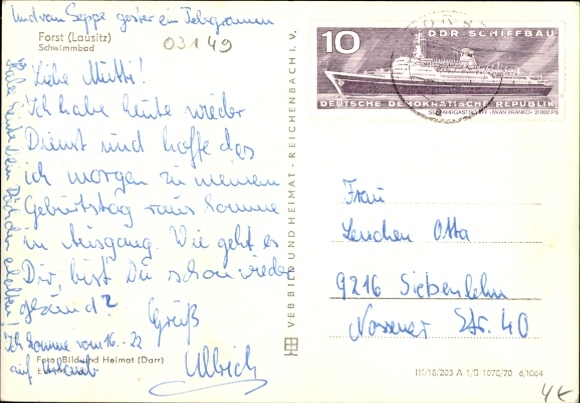 Und vom Seppe gester ein Telegramm
Forst (Lausitz)
Schwimmbad
03149
Liebe Mutti!
Ich habe heute wieder
Dienst und hoffe das
ich morgen zu meinem
Geburtstag raus komme
in Ausgang. Wie geht es
Dir, bist Du schon wieder
gesund?
Gruß
Ullrich
Ich komme vom 16. - 22
auf Urlaub
Foto: Bild und Heimat (Darr)
Habe heut dein Päckchen erhalten
VEB BILD UND HEIMAT · REICHENBACH I. V.
10
DDR-SCHIFFBAU
DEUTSCHE DEMOKRATISCHE REPUBLIK
SEEFAHRGASTSCHIFF »IWAN FRANKO« 21000 PS
Frau
Lenchen Otta
9216 Siebenlehn
Nossener Str. 40
III/18/203 A 1/B 1078/70 6/1064
4€